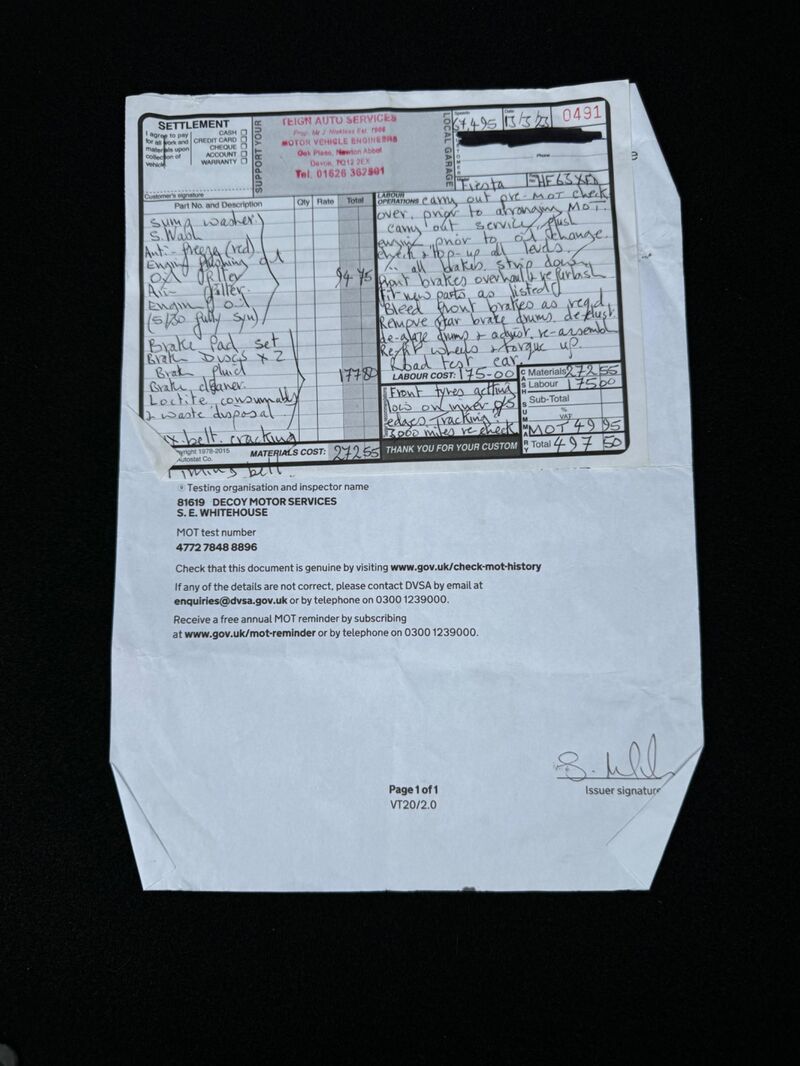 SETTLEMENT
I agree to pay
for all work and
materials upon
collection of
vehicle.
CASH
CREDIT CARD
CHEQUE
ACCOUNT
WARRANTY
Customer's signature
SUPPORT YOUR
TEIGN AUTO SERVICES
Prop. Mr J Nickless Est. 1988
MOTOR VEHICLE ENGINEERS
Oak Place, Newton Abbot
Devon, TQ12 2EX
Tel. 01626 362501
LOCAL GARAGE
Speedo
67,495
Date
13/3/23
0491
Phone
Fiesta
HF63
Part No. and Description Qty Rate Total
Sump washer
S. Wash
Anti-freeze (red)
Engine flushing oil
Oil filter 94 75
Air filter.
Engine oil
(5/30 fully syn)
Brake Pad set
Brake Discs x 2
Brake fluid 177 80
Brake cleaner.
Loctite, consumables
& waste disposal
belt. cracking
Copyright 1978-2015
Autostat Co.
MATERIALS COST: 272 55
Timing belt.
LABOUR
OPERATIONS carry out pre-MOT check
over, prior to arranging MOT.
carry out service, flush
engine prior to oil change.
Check & top-up all levels
all brakes strip down
front brakes overhaul & refurbish
Fit new parts as listed
Bleed front brakes as req'd
Remove rear brake drums, de-dust
de-glaze drums & adjust, re-assemb
Re-fit wheels & torque up.
Road test car.
LABOUR COST: 175-00
Front tyres getting
low on inner o/s
edges, tracking
3,000 miles re-check
THANK YOU FOR YOUR CUSTOM
CASH SUMMARY
Materials 272 55
Labour 175 00
Sub-Total
%
VAT
MOT 49 95
Total 497 50
Testing organisation and inspector name
81619 DECOY MOTOR SERVICES
S. E. WHITEHOUSE
MOT test number
4772 7848 8896
Check that this document is genuine by visiting www.gov.uk/check-mot-history
If any of the details are not correct, please contact DVSA by email at
enquiries@dvsa.gov.uk or by telephone on 0300 1239000.
Receive a free annual MOT reminder by subscribing
at www.gov.uk/mot-reminder or by telephone on 0300 1239000.
Issuer signature
Page 1 of 1
VT20/2.0